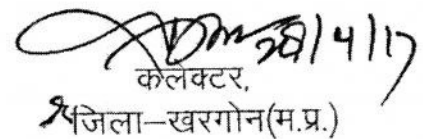 28/4/17
कलेक्टर,
जिला–खरगोन(म.प्र.)